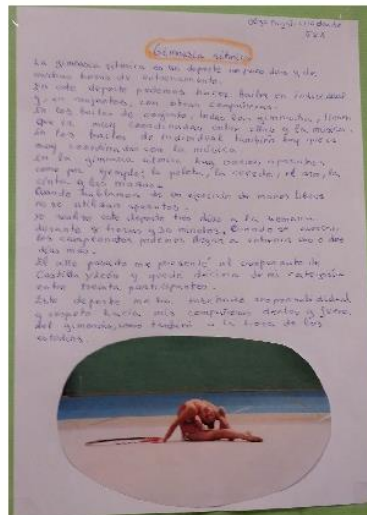 Gimnasia rítmica
La gimnasia rítmica es un deporte muy y de
muchas horas de entrenamiento.
En este deporte podemos hacer bailes en individual
y, en conjuntos, con otras compañeras.
En los bailes de conjunto, todas las gimnastas, tienen
que ir muy coordinadas entre ellas y la música.
En los bailes de individual también hay que ir
muy coordinada con la música.
En la gimnasia rítmica hay varios aparatos
como por ejemplo; la pelota, la cuerda, el aro, la
cinta y las mazas.
Cuando hablamos de un ejercicio de manos libres
no se utilizan aparatos.
Yo realizo este deporte dos días a la semana
durante horas y 30 minutos. Cuando se acercan
los campeonatos podemos llegar a entrenar uno o dos
días más.
El año pasado me presenté al campeonato de
Castilla y León y quedé décima de mi categoría
entre treinta participantes.
Este deporte me ha enseñado responsabilidad
y respeto hacia mis compañeras dentro y fuera
del gimnasio, como también a la hora de los
estudios.